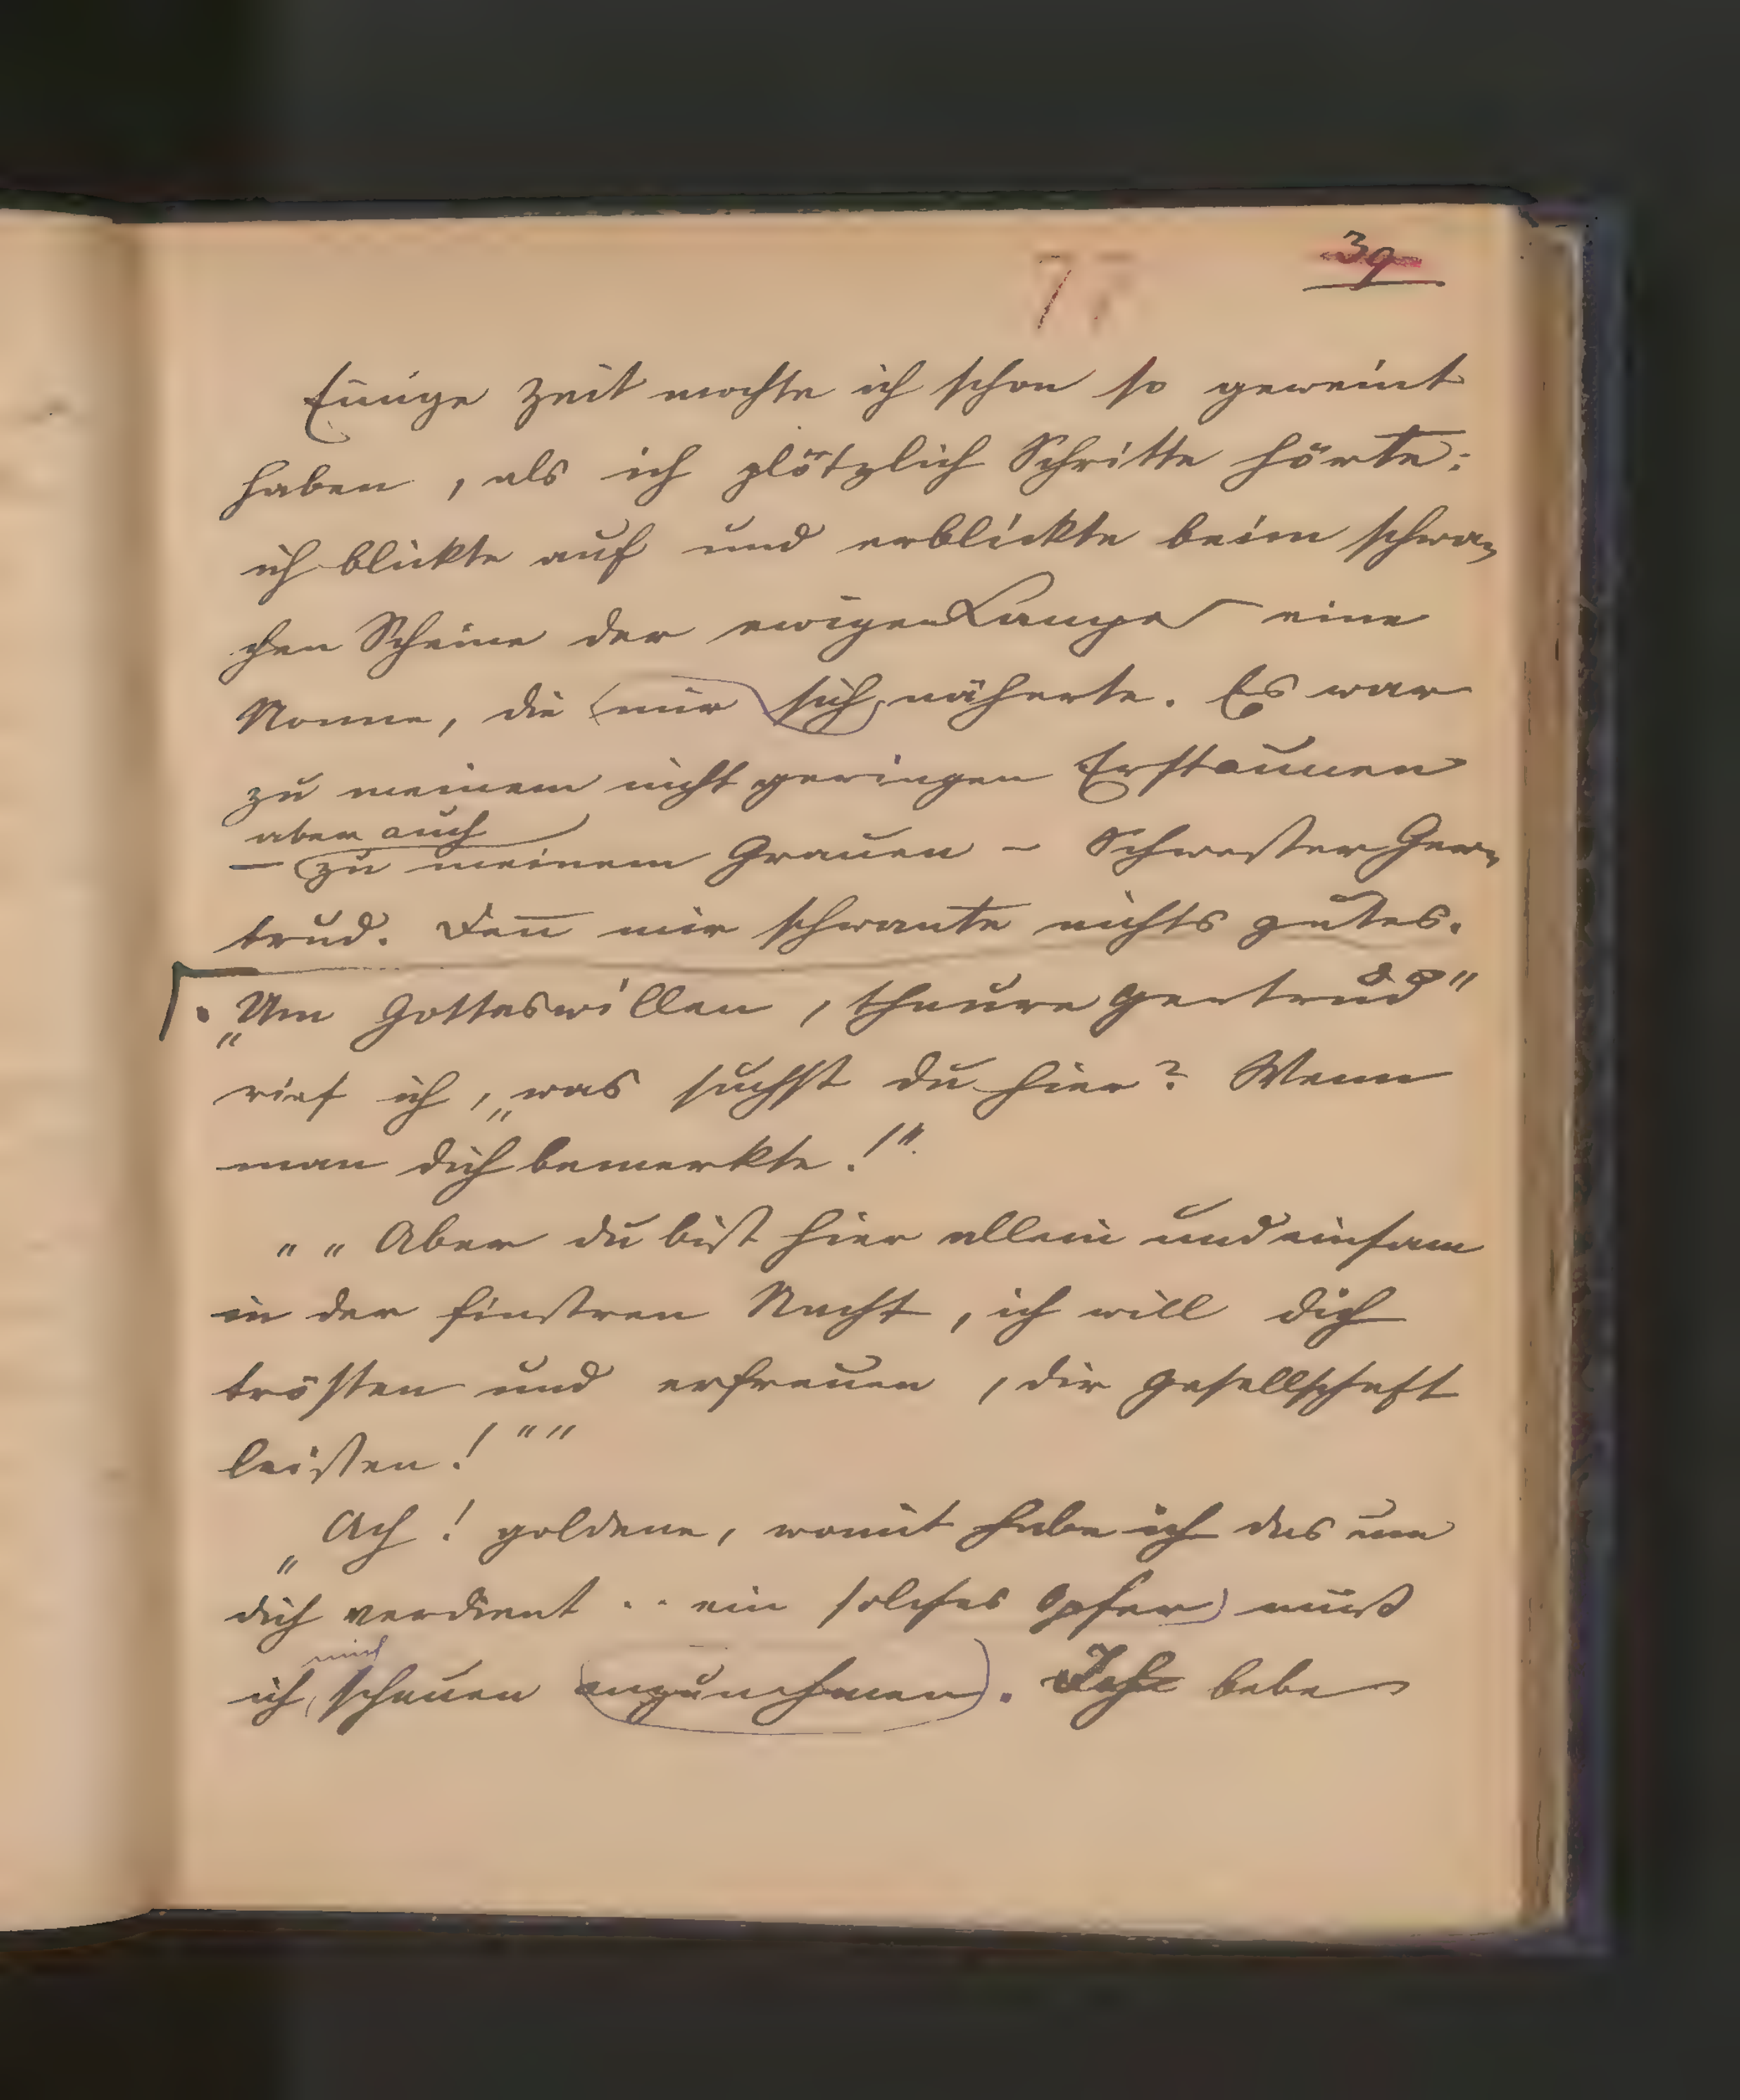 39
77
Einige Zeit mochte ich schon so geweint
haben, als ich plötzlich Schritte hörte:
ich blickte auf und erblickte beim schwa-
chen Scheine der ewigen Lampe eine
Nonne, die mir sich näherte. Es war
zu meinem nicht geringen Erstaunen
aber auch
– zu meinem Grauen – Schwester Ger-
trud. Deñ mir schwante nichts gutes.
„Um Gotteswillen, theure Gertrud"
rief ich, „was suchst du hier? Wenn
man dich bemerkte!"
" " Aber du bist hier allein und einsam
in der finstren Nacht, ich will dich
trösten und erfreuen, dir Gesellschaft
leisten! " "
„Ach! goldene, womit habe ich das um
dich verdient .. ein solches Opfer muß
mich
ich scheuen anzunehmen. Ich bebe